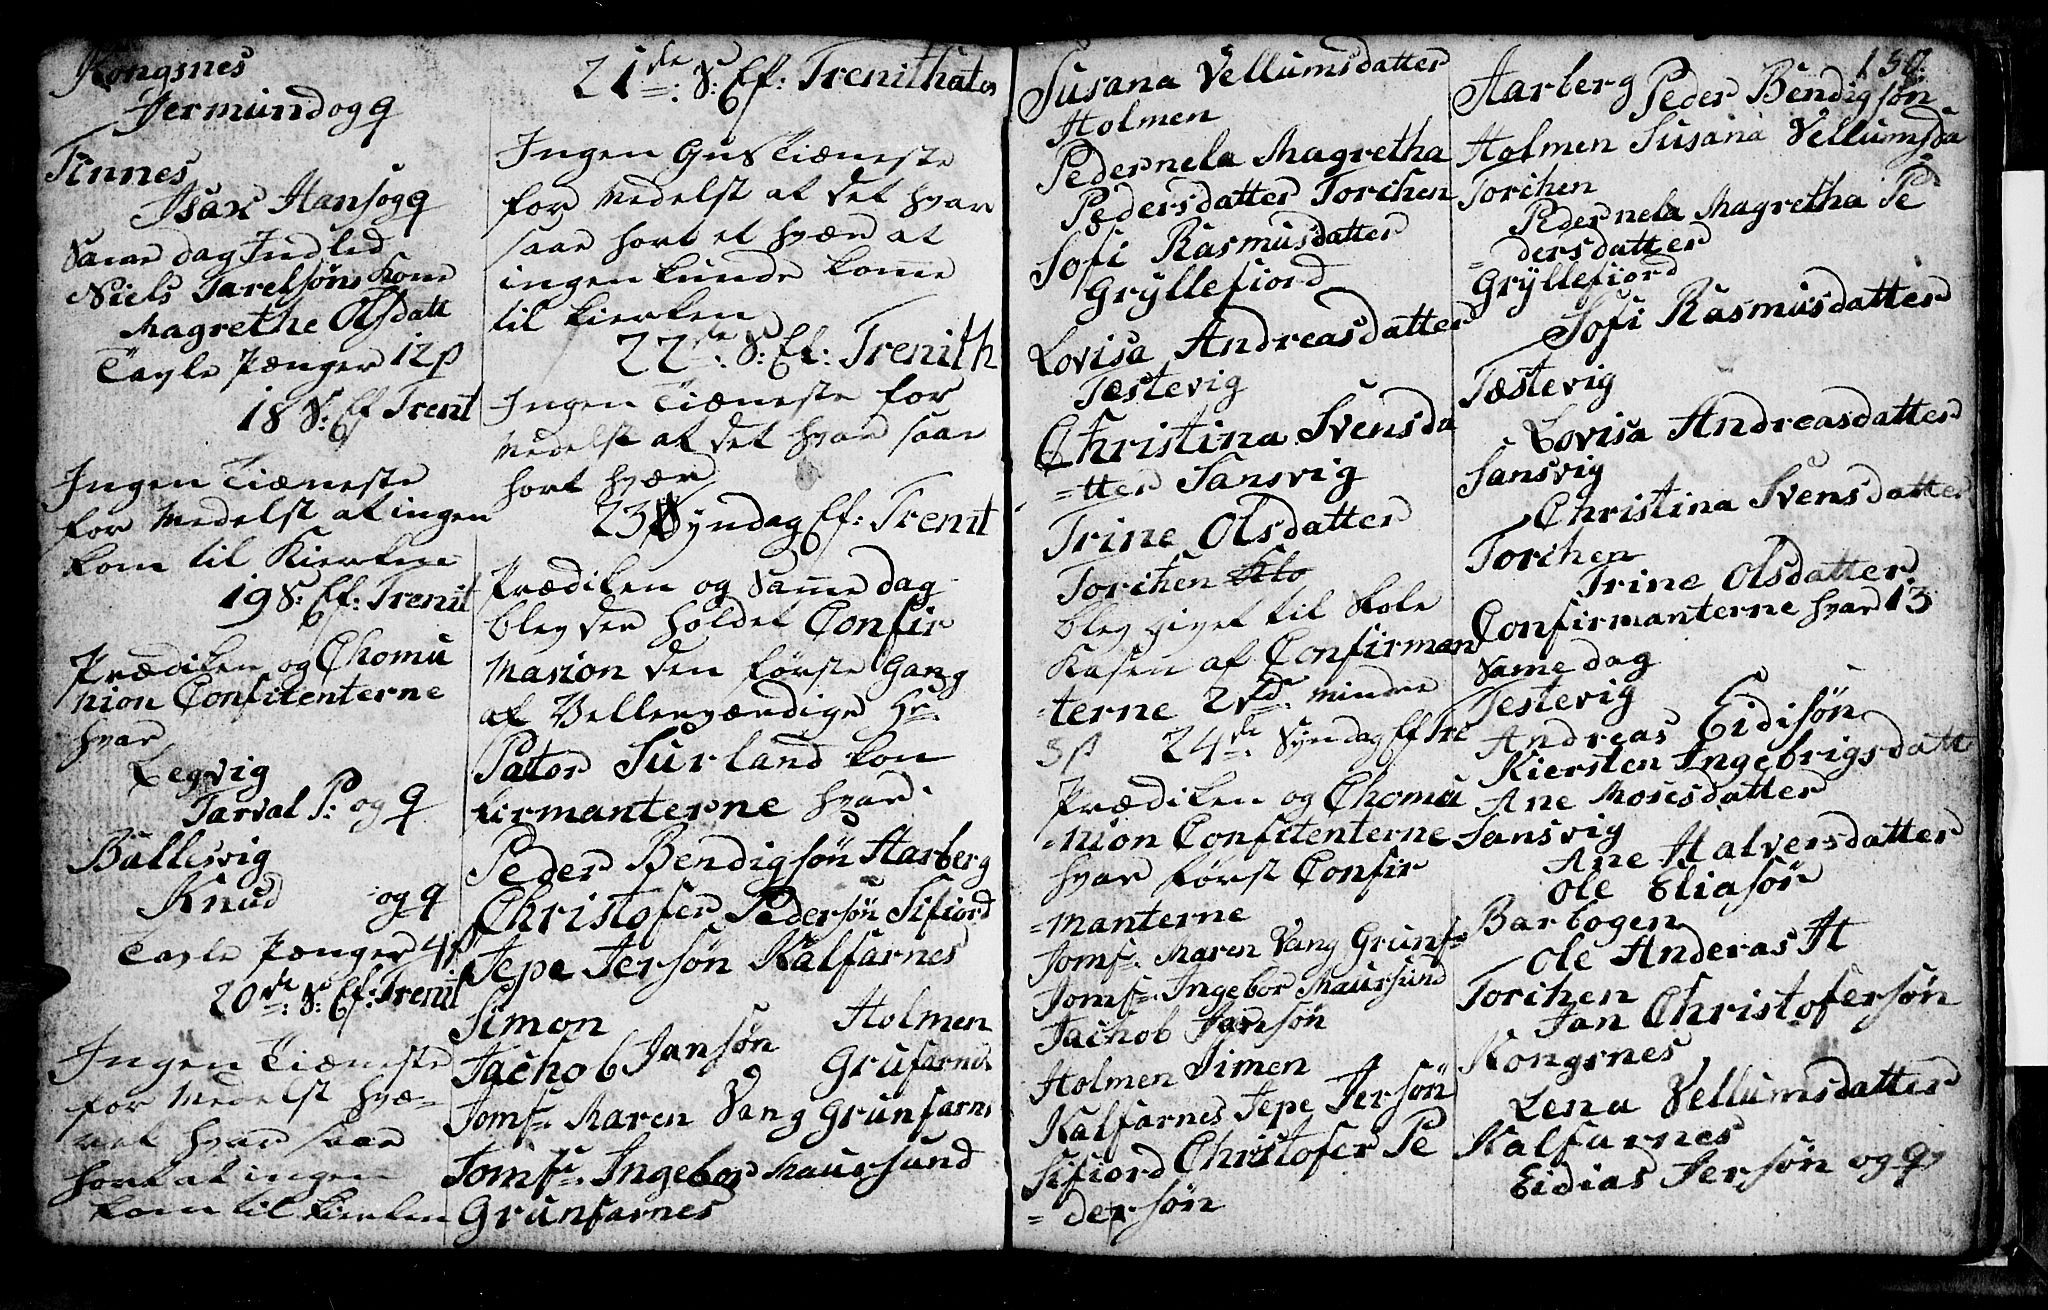 Kongsnes
Jermund og q
Finnes
Isax Hans og q
Same dag Indled
Niels Jarelsøns Kone
Magrethe Olsdatt
Tavle Pænger 12 p
18 S: Ef Trenit
Ingen Tiæneste
for Medelst at ingen
kom til Kierken
19 S: Ef: Trenit
Prædiken og Chomu
nion Confitenterne
hvar
Legvig
Tarval P: og q
Ballesvig
Knud og q
Tavle Pænger 4 p
20de S: Ef: Trenit
Ingen Tiæneste
for Medelst hvæ=
ret hvar saar
hort at ingen
kom til kierken
21de S: Ef: Trenithates
Ingen Gus Tiæneste
for Medelst at det hvar
saar hort et hvær at
ingen kunde kome
til kierken
22de S: Ef: Trenith
Ingen Tiæneste for
Medelst at det hvar saar
hort hvær
23 Syndag Ef: Trenit
Prædiken og Same dag
blev der holdet Confir
masion den første Gang
af Vellerværdige He=
Pator Jurland kon
firmanterne hvar
Peder Bendigsøn Aarberg
Christofer Pedersøn Sifiord
Jepe Jersøn Kalfarnes
Simon Holmen
Jachob Jansøn Grufarnes
Jomf: Maren Vang Grunfarns
Jomf: Ingebor Maursund
Grunfarnes
Susana Vellumsdatter
Holmen
Pedernela Magretha
Pedersdatter Torchen
Sofi Rasmusdatter
Gryllefiord
Lovisa Andreasdatter
Tæstevig
Christina Svensda
=tter Sansvig
Trine Olsdatter
Torchen
blev givet til Skole
Kasen af Confirman
=terne 2 rd mindre
3 p 24de Syndag Ef Tre
Prædiken og Chomu
=nion Confitenterne
hvar først Confir
=manterne
Jomf: Maren Vang Grunf
Jomf: Ingebor Maursund
Jachob Jansøn
Holmen Simen
Kalfarnes Jepe Jersøn
Sifiord Christofer Pe
=dersøn
130
Aarberg Peder Bendigsøn
Holmen Susana Vellumsda
Torchen
Pedernela Magretha Pe
=dersdatter
Gryllefiord
Sofi Rasmusdatter
Tæstevig
Lovisa Andreasdatter
Sansvig
Christina Svensdatter
Torchen
Trine Olsdatter
Confirmanterne hvar 13
Same dag
Testevig
Andreas Eidisøn
Kiersten Ingebrigsdatt
Ane Mosesdatter
Sansvig
Ane Halversdatter
Ole Eliasøn
Barbogen
Ole Anderas H
Torchen
Jan Christofersøn
Kongsnes
Lena Vellumsdatter
Kalfarnes
Eidias Jersøn og q